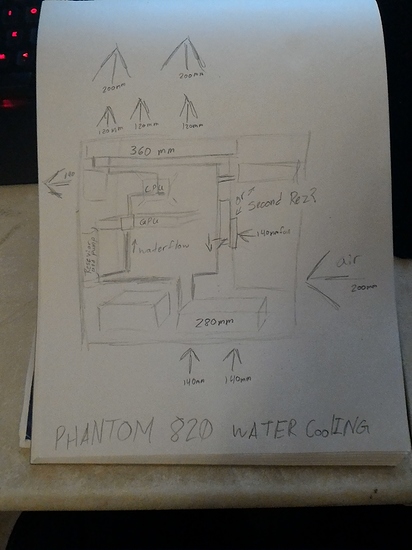 200mm
200mm
120mm
120mm
120mm
360 mm
CPU
Second Rez?
GPU
140mm fan
water flow
air
200mm
280mm
140mm
140mm
PHANTOM 820 WATER COOLING